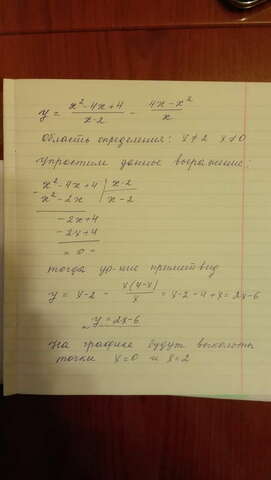 y = (x² - 4x + 4)/(x - 2) - (4x - x²)/x
Область определения: x ≠ 2 x ≠ 0
Упростим данное выражение:
- x² - 4x + 4 | x - 2
x² - 2x | x - 2
- 2x + 4
- 2x + 4
= 0 -
тогда ур-ние примет вид
y = x - 2 - x(4-x)/x = x - 2 - 4 + x = 2x - 6
y = 2x - 6
На графике будут выколоты
точки x = 0 и x = 2